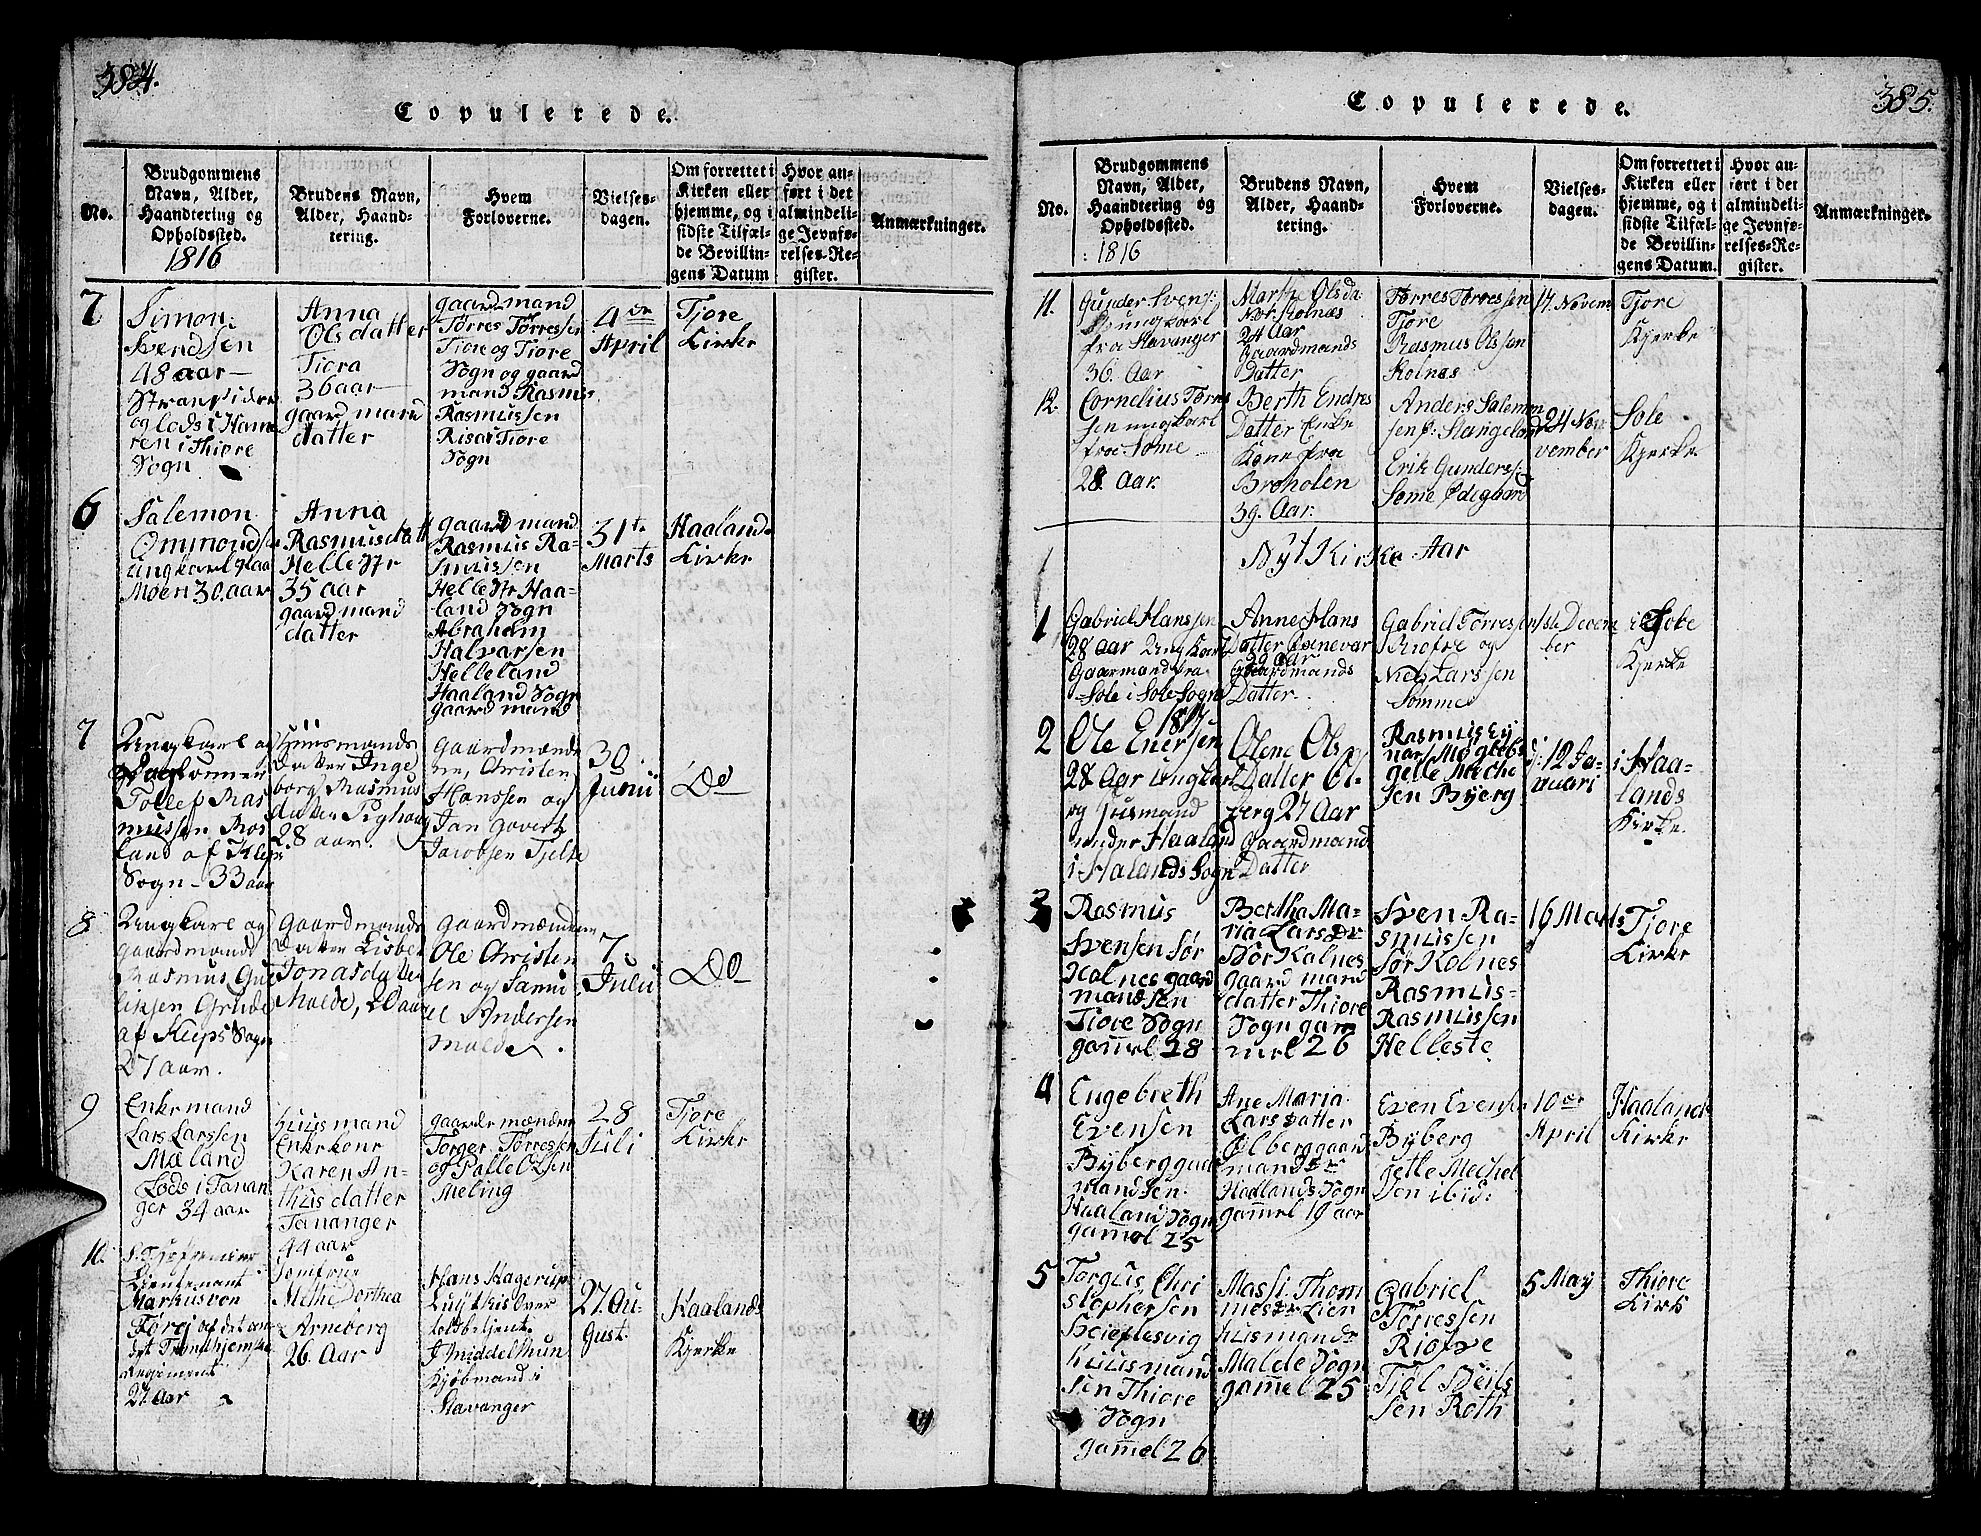 384.
Copulerede.
No.
Brudgommens
Navn, Alder,
Haandtering og
Opholdssted.
1816
Brudens Navn,
Alder, Haand-
tering.
Hvem
Forloverne.
Vielses-
dagen.
Om forrettet i
Kirken eller
hjemme, og i
sidste Tilfæl-
de Bevillin-
gens Datum
Hvor an-
ført i det
almindeli-
ge Jevnfø-
relses-Re-
gister.
Anmærkninger.
7
Simon
Svendsen
48 aar
og Lods i Hanne
ren i Thiore
Sogn
Anna
Olsdatter
Tiora
36 aar
gaard mand
datter
gaardmand
Tørres Tørressen
Tiore og Tiore
Sogn og gaard
mand Rasmus
Rasmussen
Risa i Tiore
Sogn
4de
April
Tjore
Kirke
6
Salemon
Ommonds
ungkarl Haa
Moen 30. aar
Anna
Rasmusdatt
Helle Str
35 aar
gaardmand
datter
gaard mand
Rasmus Ra-
smussen
Helle Str Haa-
land Sogn
Abraham
Halvarsen
Helleland
Haaland Sogn
gaard mand
31te
Marts
Haalands
Kirke
7
Ungkarl og
Tollef Ras
mussen
land af Klep
Sogn - 33 aar
Huusmands
Datter Inge
borg Rasmus
datter
28 aar.
Gaardmænde
ne, Christen
Hanssen og
Jan Govert
Jacobsen Tjelte
30
Junii
Do
8
Ungkarl og
gaardmands
Rasmus
af Kleps Sogn
27 aar.
Gaardmands
Datter Lisbet
Jonasdatter
Malde, 20 aar
Gaardmændene
Ole Christen
sen og Samu
el Andersen
Malde.
7
Julii
Do
9
Enkemand
Lars Larssen
Mæland
Lods i Tanan
ger 34 aar
Huusmand
Enkekone
Karen An-
thusdatter
Tananger
44 aar
gaardemænden
Torger Tørressen
og Palle Olsen
Meling
28
Juli
Tjore
Kirke
10.
Lieutenant
Markus von
Førej af det
det Trondhjemske
Regiment
27 Aar
Jomfrue
Methe Dorthea
Arneberg
26. Aar
Hans Hagerup
Over
toldbetjent.
J Middelthun
Kjøbmand i
Stavanger
27. Au-
gust.
Haalands
Kjerke
385.
Copulerede.
No.
Brudgommens
Navn, Alder,
Haandtering og
Opholdssted.
1816
Brudens Navn,
Alder, Haand-
tering.
Hvem
Forloverne.
Vielses-
dagen.
Om forrettet i
Kirken eller
hjemme, og i
sidste Tilfæl-
de Bevillin-
gens Datum.
Hvor an-
ført i det
almindeli-
ge Jevnfø-
relses-Re-
gister.
Anmærkninger.
11.
Gunder Svens:
ungkarl
fra Stavanger
36. Aar
Marthe Olsda:
Nor: Kolnæs
24 Aar
Gaardmands
Datter
Tørres Tørressen
Tjore
Rasmus Olssen
Kolnæs
14 Novem
Tjore
Kjerke
12.
Cornelius Tørres
sen ungkarl
fra Sømme
28. Aar.
Berth Endres
Datter Enke
Kone fra
Broholen
39. Aar.
Anders Salemon
sen p: Stangeland
Erik Gunders:
Sømme Ødegaard
24 No-
vember
Sole
Kjerke
Nyt Kirke Aar
1
Gabriel Hanssen
28 Aar Ungkarl
Gaarmand fra
Sole i Sole Sogn
Anne Hans
Datter
29 Aar
Gaardmands
Datter
Gabriel Tørressen
og
Niels Larssen
Sømme
1ste Decem
ber
i Sole
Kjerke
1817
2
Ole Enersen
28 Aar Ungkarl
og Husmand
under Haaland
i Halands Sogn
Olene Ols
Datter Øl-
berg 27 Aar
Gaardmand
Datter
Rasmus Ey
nars Mogleb
Gelle Miche
sen Byberg
d: 12 Ja-
nuari
i Haa-
lands
Kirke.
3
Rasmus
Svensen Sør
Kolnes gaard
mandsen
Tiore Sogn
gammel 28
Bertha Ma-
ria Larsdr
Sør Kolnes
gaard mand
datter Thiore
Sogn gam
mel 26
Sven Ra-
smussen
Sør Kolnes
Rasmus
Rasmussen
Helleste
16 Marts
Tjore
Kirke
4
Engebreth
Evensen
Byberg gaar
mandsen.
Haaland Sogn
gammel 25
Ane Maria
Larsdatter
Ølberg gaard
mandsdr
Hadlands Sogn
gammel 19 aar
Even Evensen
Byberg
gelle Mechel
sen ibid:
10de
April
Haaland
Kirke
5
Torgus Chri
stophersen
huusmand
sen Thiore
Sogn
gammel 26
Massi. Thom
mesdr Lien
husmandr
Malde Sogn
gammel 25
Gabriel
Tørressen
Tjøl Seils
sen Roth
5 May
Thiore
Kirk